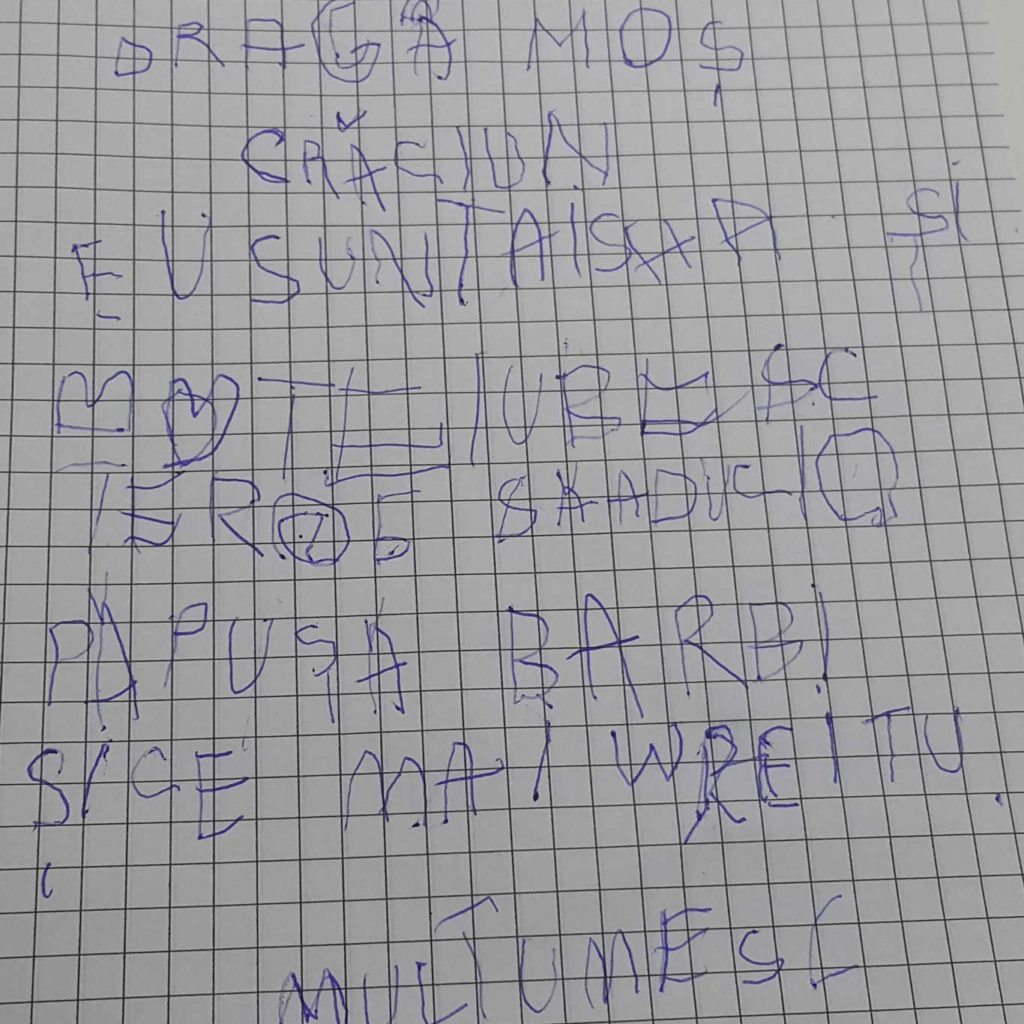 DRAGĂ MOȘ
CRĂCIUN
EU SUNT AISXA ȘI
TE IUBESC
TE ROG SĂ ADUCI O
PĂPUȘA BARBI
ȘI CE MAI WREI TU
MULTUMESC